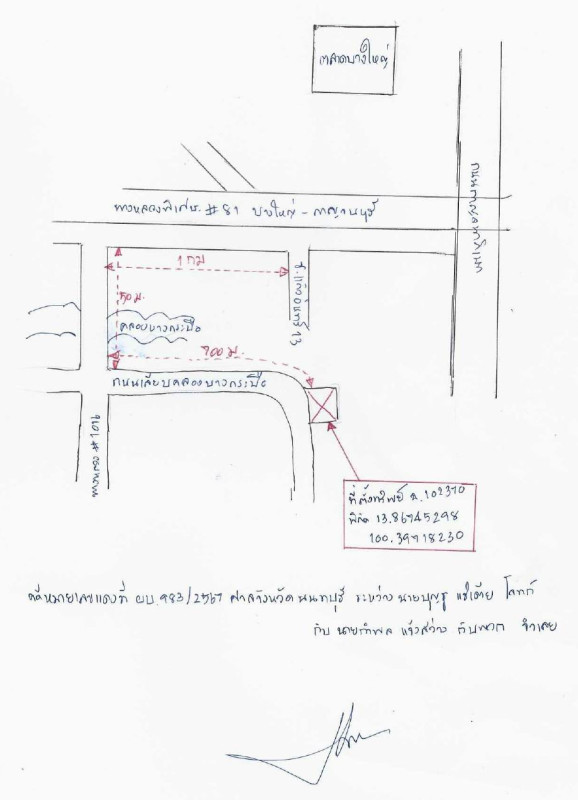 ตลาดบางใหญ่
ถนนกาญจนาภิเษก
ทางหลวงพิเศษ #81 บางใหญ่ - กาญจนบุรี
1 กม
ซ.แก้วอินทร์ 13
50 ม.
คลองบางกระบือ
700 ม.
ถนนเลียบคลองบางกระบือ
ทางหลวง #1016
ที่ตั้งทรัพย์ ฉ.102370
พิกัด 13.86745298
100.39718230
คดีหมายเลขแดงที่ ผบ.983/2567 ศาลจังหวัดนนทบุรี ระหว่าง นายบุญชู แซ่เตีย โจทก์
กับ นายกำพล แจ้งสว่าง กับพวก จำเลย